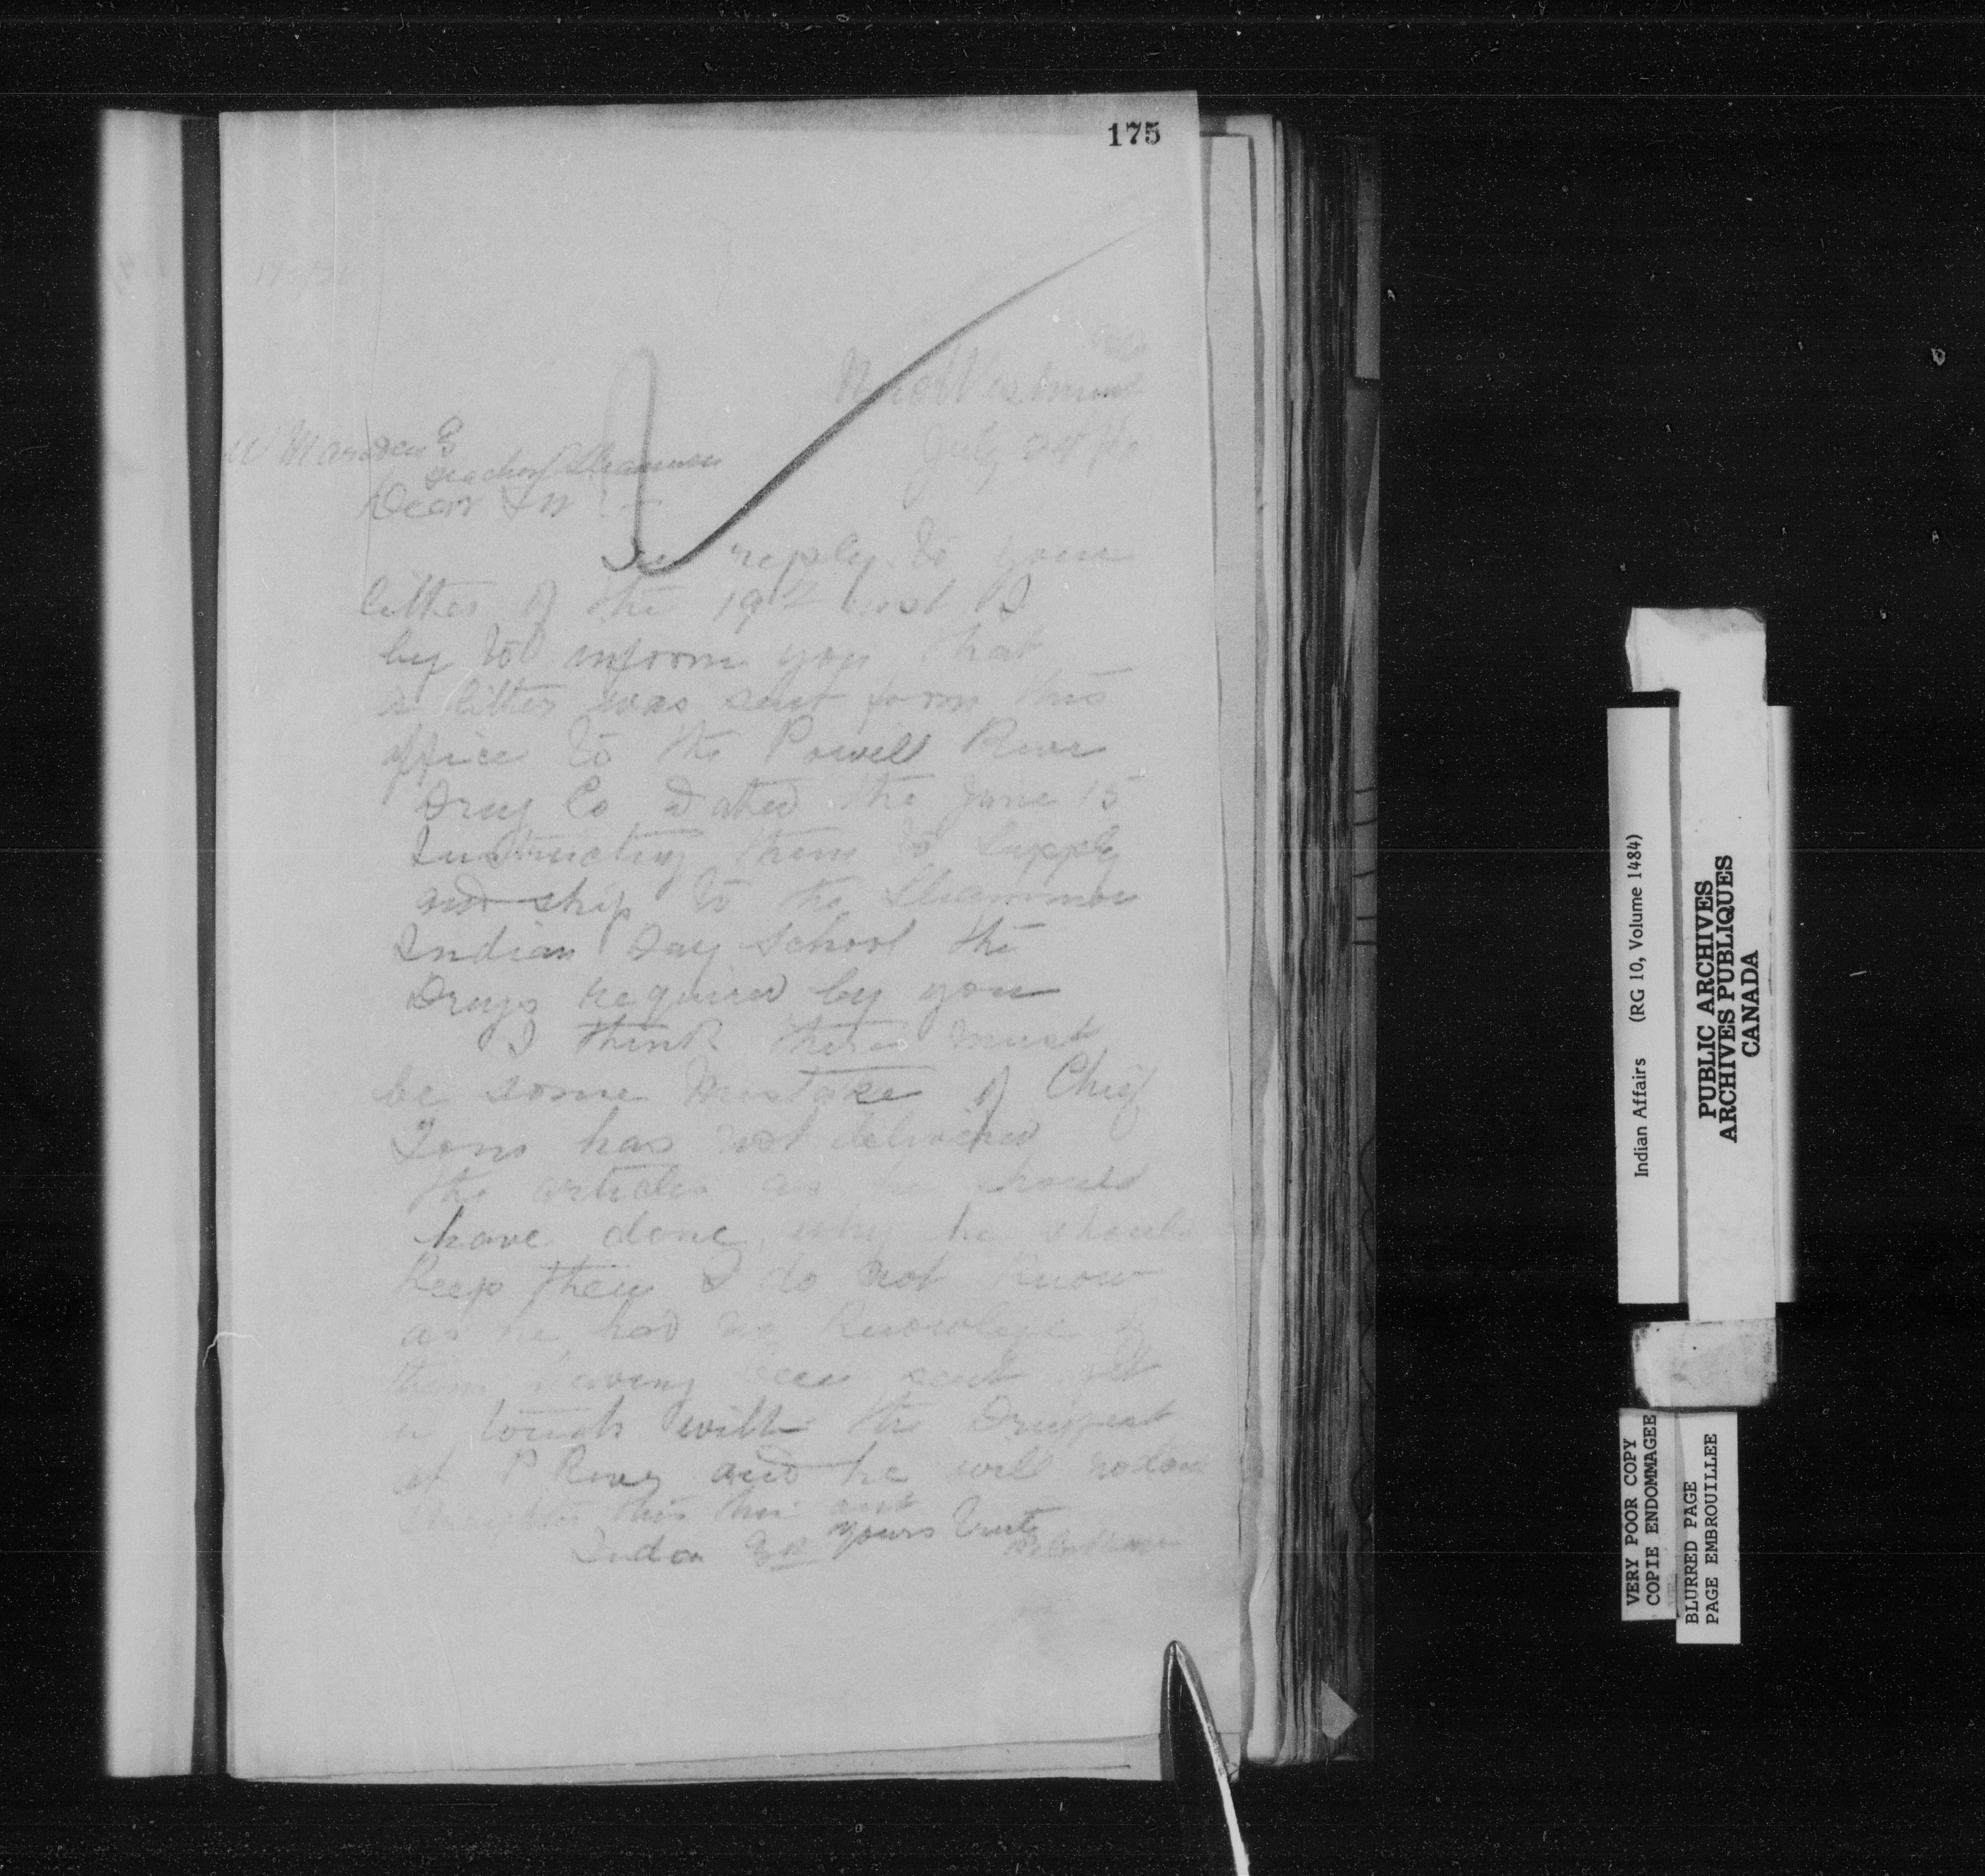 175
New Westminst
July 24
W Marsden
Teacher Sliammon
Dear Sir :-
In reply to your
letter of the 19th inst I
beg to inform you that
a letter was sent form this
office to the Powell River
Drug Co Dated the June 15
Instructing them to Supply
and ship to the Sliammon
Indian Day School the
Drugs required by you
I think there must
be some mistake if Chief
Tom has not delivered
the articles as he should
have done, why he should
Keep them I do not Know
as he had no Knowlege of
them having been sent get
in touch with the Druggest
at P River and he will no dou
this
Yours Truly
Indian
Indian Affairs (RG 10, Volume 1484)
PUBLIC ARCHIVES
ARCHIVES PUBLIQUES
CANADA
VERY POOR COPY
COPIE ENDOMMAGEE
BLURRED PAGE
PAGE EMBROUILLEE